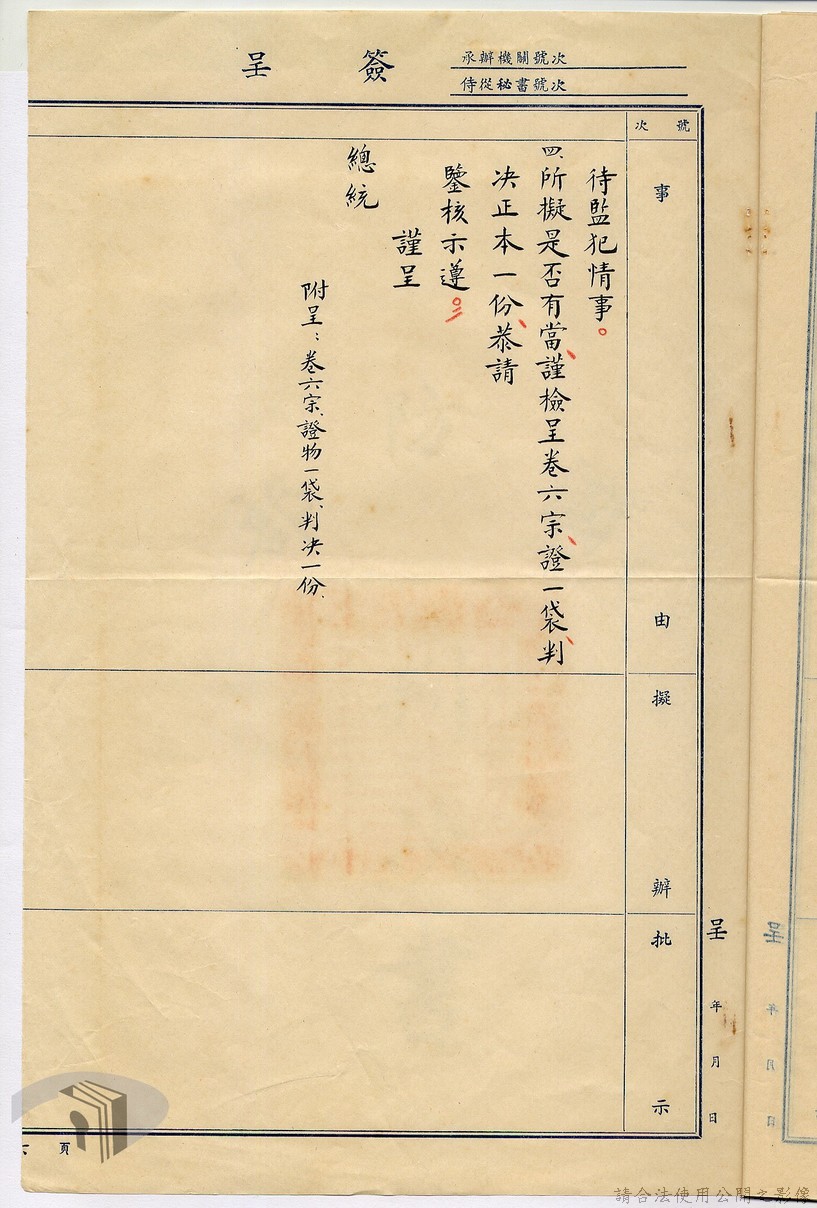 簽呈
承辦機關號次
侍從秘書號次
號次
事由
擬辦
批示
呈 年 月 日
待監犯情事。
四、所擬是否有當、謹檢呈卷六宗、證一袋、判
決正本一份、恭請
鑒核示遵。
謹呈
總統
附呈：卷六宗、證物一袋、判決一份、
頁
呈 年 月 日
請合法使用公開之影像